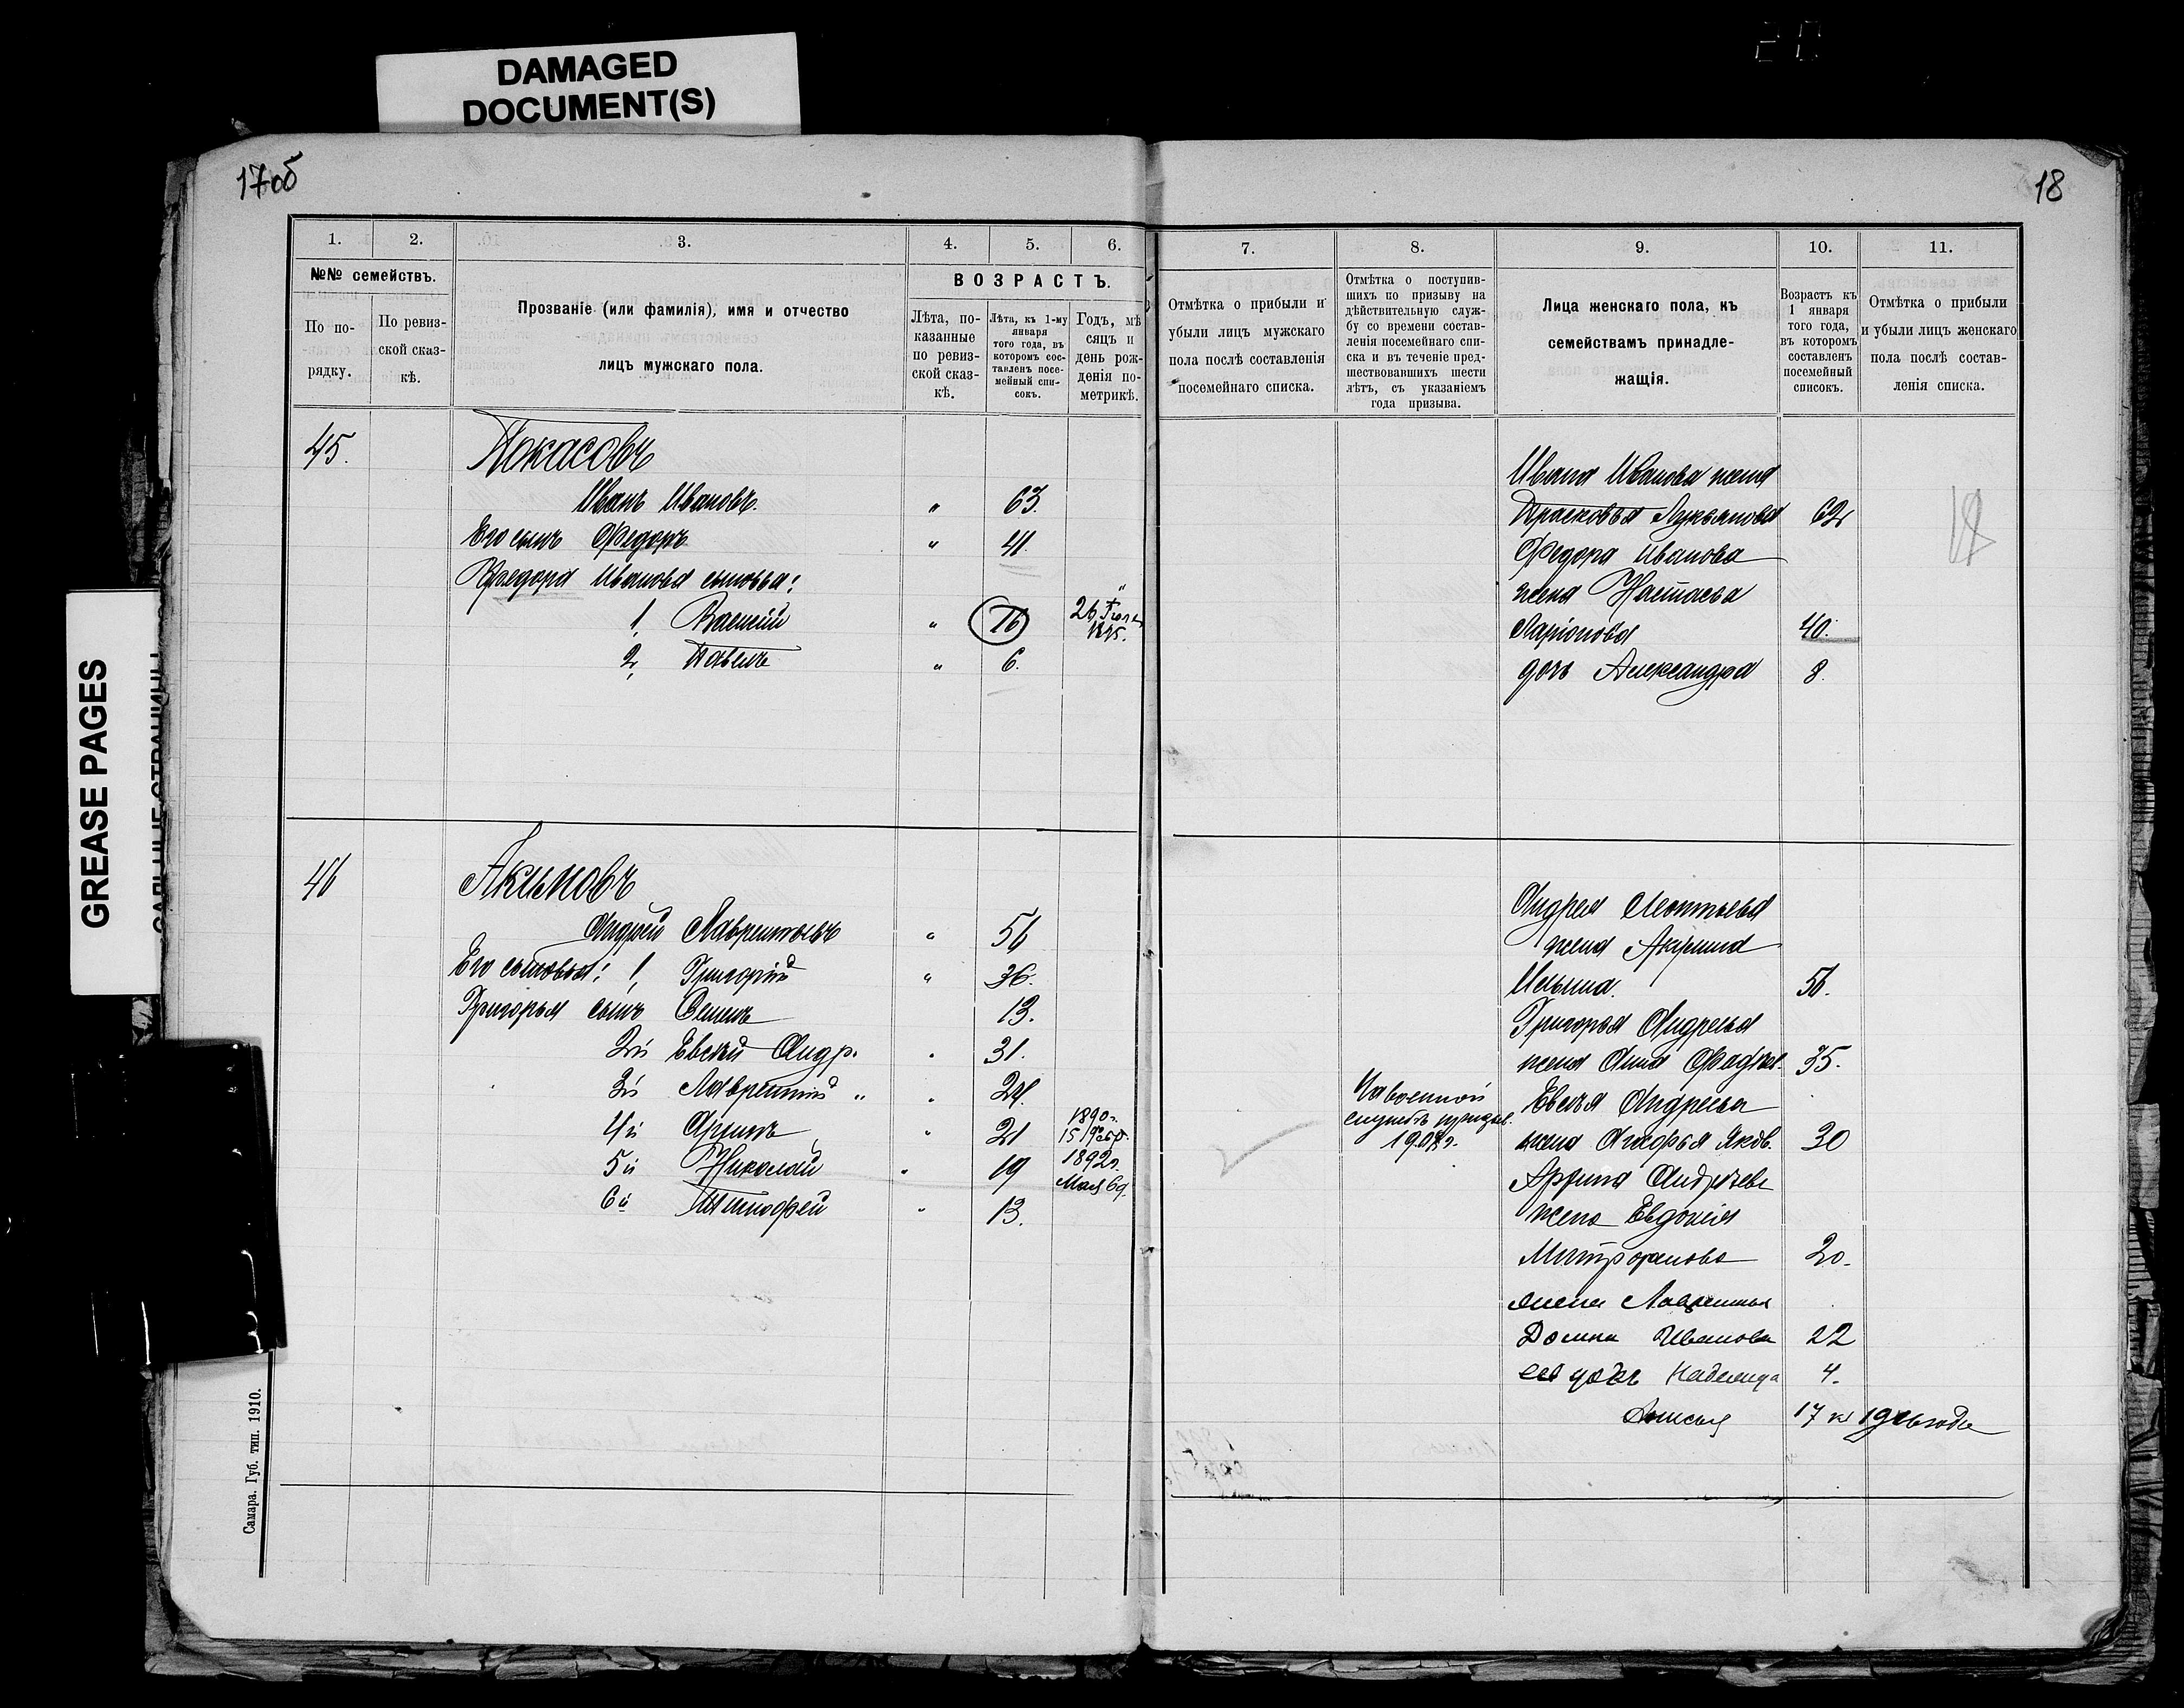 DAMAGED
DOCUMENT(S)
GREASE PAGES
17об
18
1.
2.
3.
4.
5.
6.
7.
8.
9.
10.
11.
№№ семействъ.
По по-
рядку.
По ревиз-
ской сказ-
кѣ.
Прозваніе (или фамилія), имя и отчество
лицъ мужскаго пола.
ВОЗРАСТЪ.
Лѣта, по-
казанные
по ревиз-
ской сказ-
кѣ.
Лѣта, къ 1-му
января
того года, въ
которомъ сос-
тавленъ посе-
мейный спи-
сокъ.
Годъ, мѣ
сяцъ и
день рож-
денія по-
метрикѣ.
Отмѣтка о прибыли и
убыли лицъ мужскаго
пола послѣ составленія
посемейнаго списка.
Отмѣтка о поступив-
шихъ по призыву на
дѣйствительную служ-
бу со времени состав-
ленія посемейнаго спи-
ска и въ теченіе пред-
шествовавшихъ шести
лѣтъ, съ указаніемъ
года призыва.
Лица женскаго пола, къ
семействамъ принадле-
жащія.
Возрастъ къ
1 января
того года,
въ которомъ
составленъ
посемейный
списокъ.
Отмѣтка о прибыли
и убыли лицъ женскаго
пола послѣ состав-
ленія списка.
45.
Покасовъ
Иванъ Ивановъ. " 63.
Его сынъ Федоръ " 41
Федора Иванова сыновья:
1, Василій " 16
2, Павелъ " 6.
Ивана Иванова жена
Прасковья Лукьянова 62
Федора Иванова
жена Настасья
Ларіонова 40.
дочь Александра 8.
18
46
Акимовъ
Андрей Лаврентьевъ " 56
Его сыновья: 1, Григорій " 36.
Григорья сынъ Семенъ 13.
2й Евсѣй Андр. " 31.
3й Лаврентій " "
4й " 21 1890г.
15 Февр.
5й Николай " 19 1892г.
Мая 6д.
6й Тимофей " 13.
На военной
службѣ призыв.
Андрея Леонтьева
жена Акулина
Ильина. 56.
Григорья Андреева
жена Анна 35.
Евсѣя Андреева
жена Яков. 30
Андреева
жена Евдокія
Митрофанова 20.
жена Лаврентья
Домна Иванова 22
ея дочь Надежда 4.
17 к
Самара. Губ. тип. 1910.